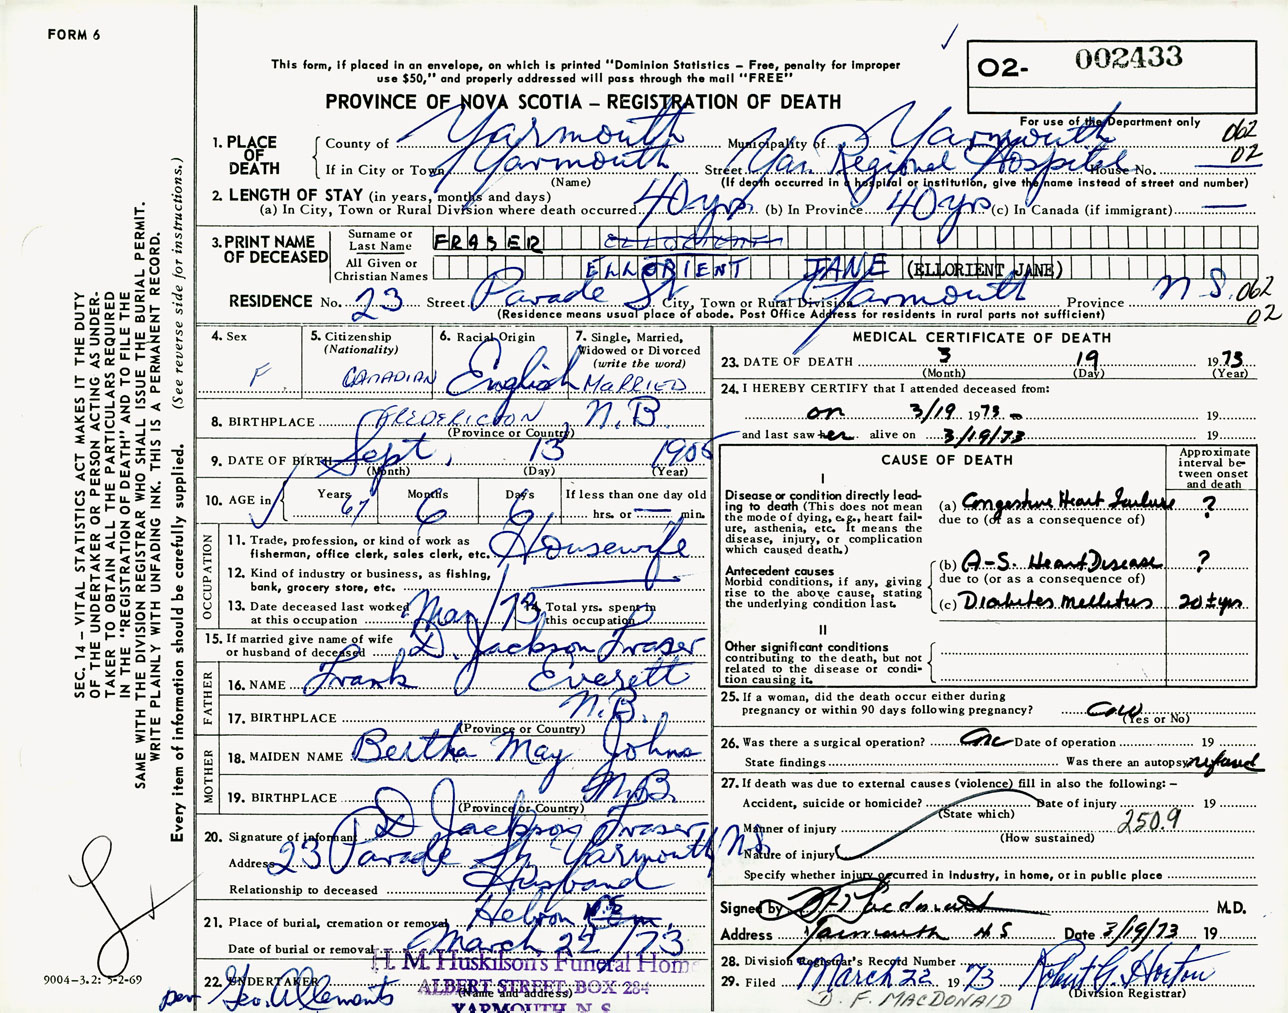 FORM 6
This form, if placed in an envelope, on which is printed "Dominion Statistics – Free, penalty for improper
use $50," and properly addressed will pass through the mail "FREE"
O2- 002433
PROVINCE OF NOVA SCOTIA – REGISTRATION OF DEATH
For use of the Department only
062
02
1. PLACE OF DEATH
County of Yarmouth Municipality of Yarmouth
If in City or Town Yarmouth Street Yar. Regional Hospital House No.
(Name) (If death occurred in a hospital or institution, give the name instead of street and number)
2. LENGTH OF STAY (in years, months and days)
(a) In City, Town or Rural Division where death occurred 40 yrs. (b) In Province 40 yrs (c) In Canada (if immigrant) —
3. PRINT NAME OF DECEASED
Surname or Last Name FRASER
All Given or Christian Names ELLORIENT JANE (ELLORIENT JANE)
RESIDENCE No. 23 Street Parade St City, Town or Rural Division Yarmouth Province N.S. 062
02
(Residence means usual place of abode. Post Office Address for residents in rural parts not sufficient)
4. Sex F
5. Citizenship (Nationality) CANADIAN
6. Racial Origin English
7. Single, Married, Widowed or Divorced (write the word) MARRIED
8. BIRTHPLACE FREDERICTON, N.B.
(Province or Country)
9. DATE OF BIRTH Sept. 13 1905
(Month) (Day) (Year)
10. AGE in Years 67 Months 6 Days 6 If less than one day old
hrs. or — min.
OCCUPATION
11. Trade, profession, or kind of work as
fisherman, office clerk, sales clerk, etc. Housewife
12. Kind of industry or business, as fishing,
bank, grocery store, etc.
13. Date deceased last worked
at this occupation Mar/73
14. Total yrs. spent in
this occupation
15. If married give name of wife
or husband of deceased D. Jackson Fraser
FATHER
16. NAME Frank Everett
17. BIRTHPLACE N.B.
(Province or Country)
MOTHER
18. MAIDEN NAME Bertha May Johns
19. BIRTHPLACE N.B.
(Province or Country)
20. Signature of informant D Jackson Fraser
Address 23 Parade St. Yarmouth N.S.
Relationship to deceased Husband
21. Place of burial, cremation or removal Hebron
Date of burial or removal March 22/73
22. UNDERTAKER
(Name and address)
H. M. Huskilson's Funeral Home
ALBERT STREET, BOX 284
YARMOUTH, N.S.
per
MEDICAL CERTIFICATE OF DEATH
23. DATE OF DEATH 3 19 1973
(Month) (Day) (Year)
24. I HEREBY CERTIFY that I attended deceased from:
on 3/19 1973 19
and last saw her alive on 3/19/73 19
CAUSE OF DEATH
Approximate interval between onset and death
I
Disease or condition directly leading to death (This does not mean the mode of dying, e.g., heart failure, asthenia, etc. It means the disease, injury, or complication which caused death.)
(a) Congestive Heart Failure ?
due to (or as a consequence of)
Antecedent causes
Morbid conditions, if any, giving rise to the above cause, stating the underlying condition last.
(b) A-S. Heart Disease ?
due to (or as a consequence of)
(c) Diabetes mellitus 20 ± yrs
II
Other significant conditions
contributing to the death, but not related to the disease or condition causing it.
25. If a woman, did the death occur either during
pregnancy or within 90 days following pregnancy?
(Yes or No)
26. Was there a surgical operation? Date of operation 19
State findings Was there an autopsy
27. If death was due to external causes (violence) fill in also the following: –
Accident, suicide or homicide? Date of injury 19
(State which)
Manner of injury 250.9
(How sustained)
Nature of injury
Specify whether injury occurred in industry, in home, or in public place
Signed by M.D.
Address Yarmouth N S Date 3/19/73 19
28. Division Registrar's Record Number
29. Filed March 22 1973 Robert G. Horton
(Division Registrar)
D. F. MACDONALD
SEC. 14 – VITAL STATISTICS ACT MAKES IT THE DUTY
OF THE UNDERTAKER OR PERSON ACTING AS UNDER-
TAKER TO OBTAIN ALL THE PARTICULARS REQUIRED
IN THE "REGISTRATION OF DEATH" AND TO FILE THE
SAME WITH THE DIVISION REGISTRAR WHO SHALL ISSUE THE BURIAL PERMIT.
WRITE PLAINLY WITH UNFADING INK. THIS IS A PERMANENT RECORD.
Every item of information should be carefully supplied. (See reverse side for instructions.)
9004–3.2: 5-2-69